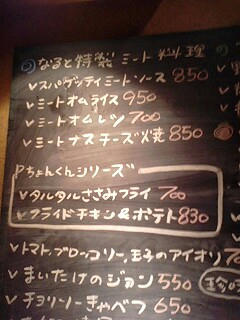 なると特製 ミート料理
✓スパゲッティミートソース 850
✓ミートオムライス 950
✓ミートオムレツ 700
✓ミートナスチーズ焼 850
Pちょんくんシリーズ
✓タルタルささみフライ 700
✓フライドチキン&ポテト 830
✓トマト、ブロッコリー、玉子のアイオリ
✓まいたけのジョン 550
✓チョリソーきゃべつ 650